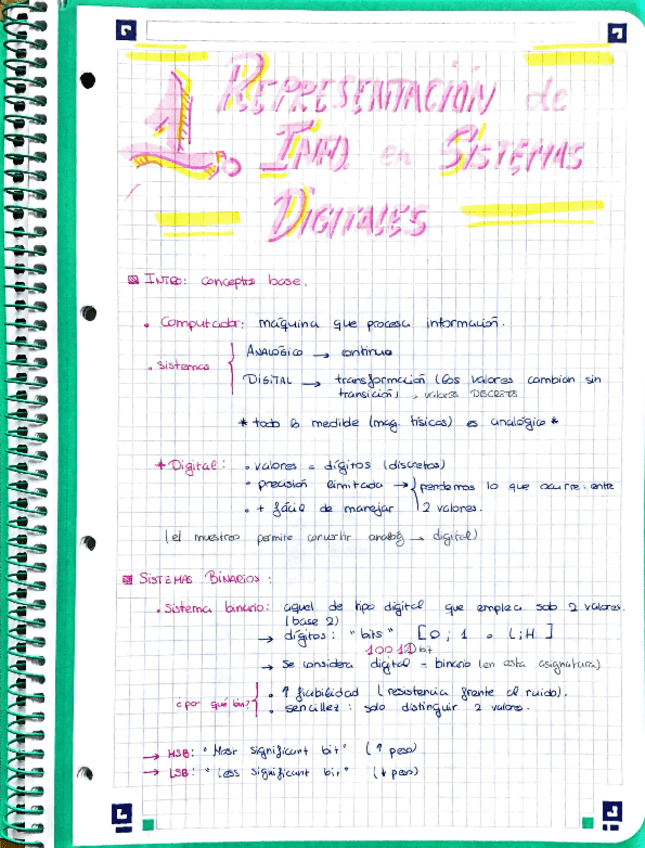 1. REPRESENTACIÓN de
INFO en SISTEMAS
DIGITALES
INTRO: conceptos base.
• Computador: máquina que procesa información.
• Sistemas
ANALÓGICO → continuo
DIGITAL → transformación (los valores cambian sin
transición), valores DISCRETOS
* todo lo medible (mag. físicas) es analógico *
* Digital: • valores = dígitos (discretos)
• precisión limitada → perdemos lo que ocurre entre
2 valores.
• + fácil de manejar
(el muestreo permite convertir analóg → digital)
SISTEMAS BINARIOS:
• Sistema binario: aquel de tipo digital que emplea solo 2 valores.
(base 2)
→ dígitos: "bits" [0;1 o L;H]
→ Se considera digital = binario (en esta asignatura)
¿por qué bin?
• ↑ fiabilidad (resistencia frente al ruido).
• sencillez: solo distinguir 2 valores.
→ MSB: "Most significant bit" (↑ peso)
→ LSB: "Less significant bit" (↓ peso)